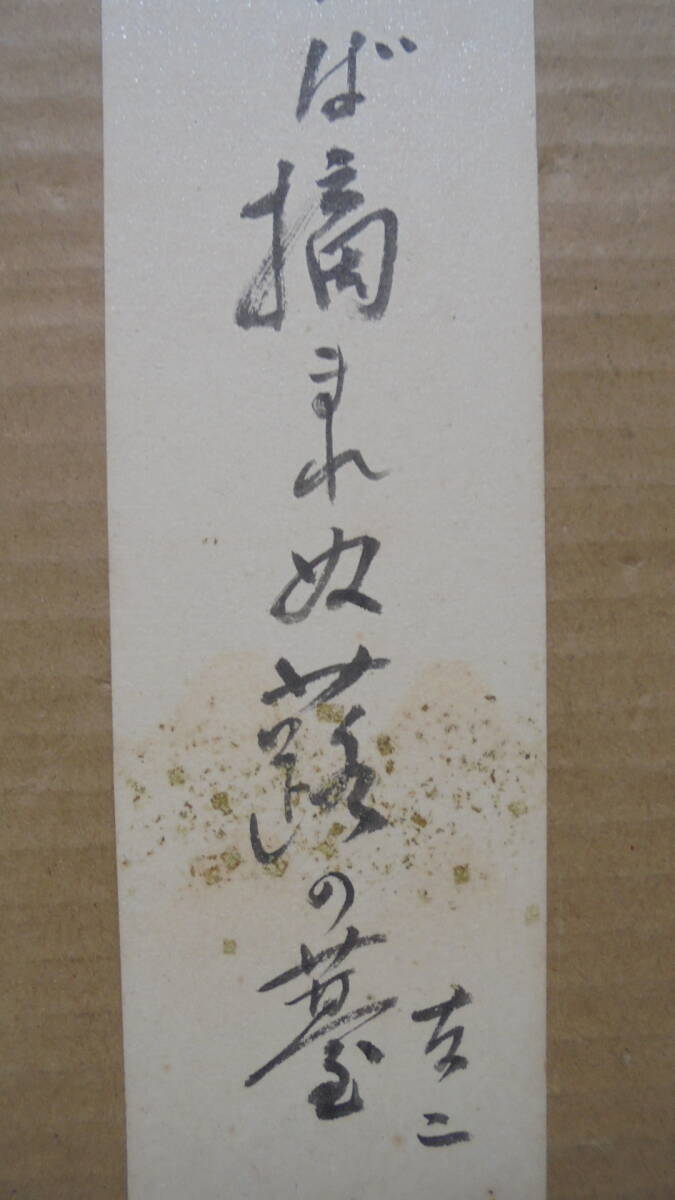 ば摘まれぬ蕗の薹
友二